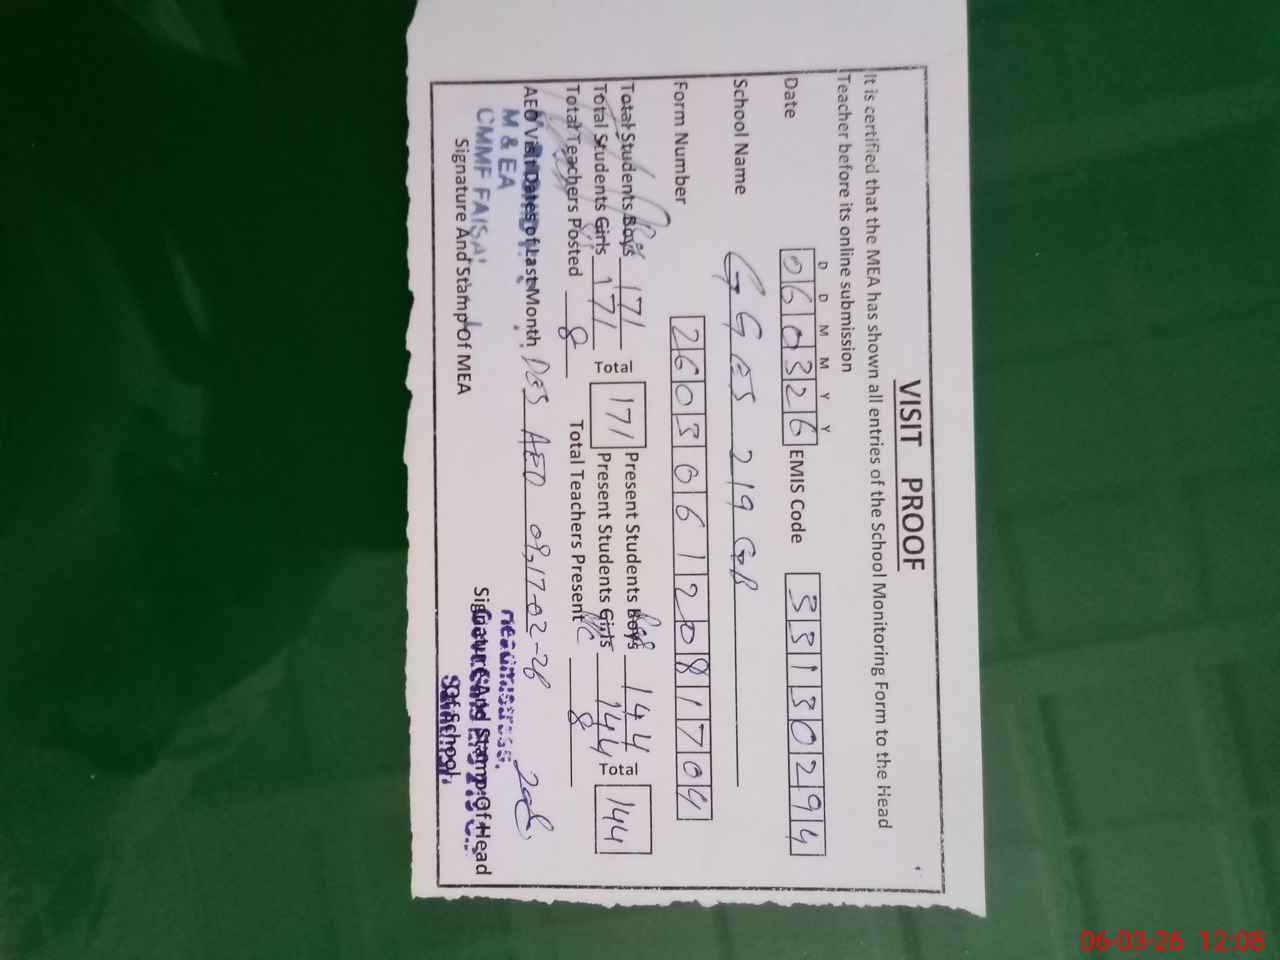 VISIT PROOF
It is certified that the MEA has shown all entries of the School Monitoring Form to the Head
Teacher before its online submission
D D M M Y Y
Date 060326 EMIS Code 33130294
School Name GGES 219 GB
Form Number 26030612081704
Total Students Boys 171 Total 171 Present Students Boys 144 Total 144
Total Students Girls 171 Present Students Girls 144
Total Teachers Posted 8 Total Teachers Present 8
AEO Visit Dates of Last Month DES AEO 09,17-02-26
M & EA
CMMF FAISA
Headmistress.
Signature And Stamp Of MEA
Signature And Stamp Of Head
Of School
06-03-26 12:08